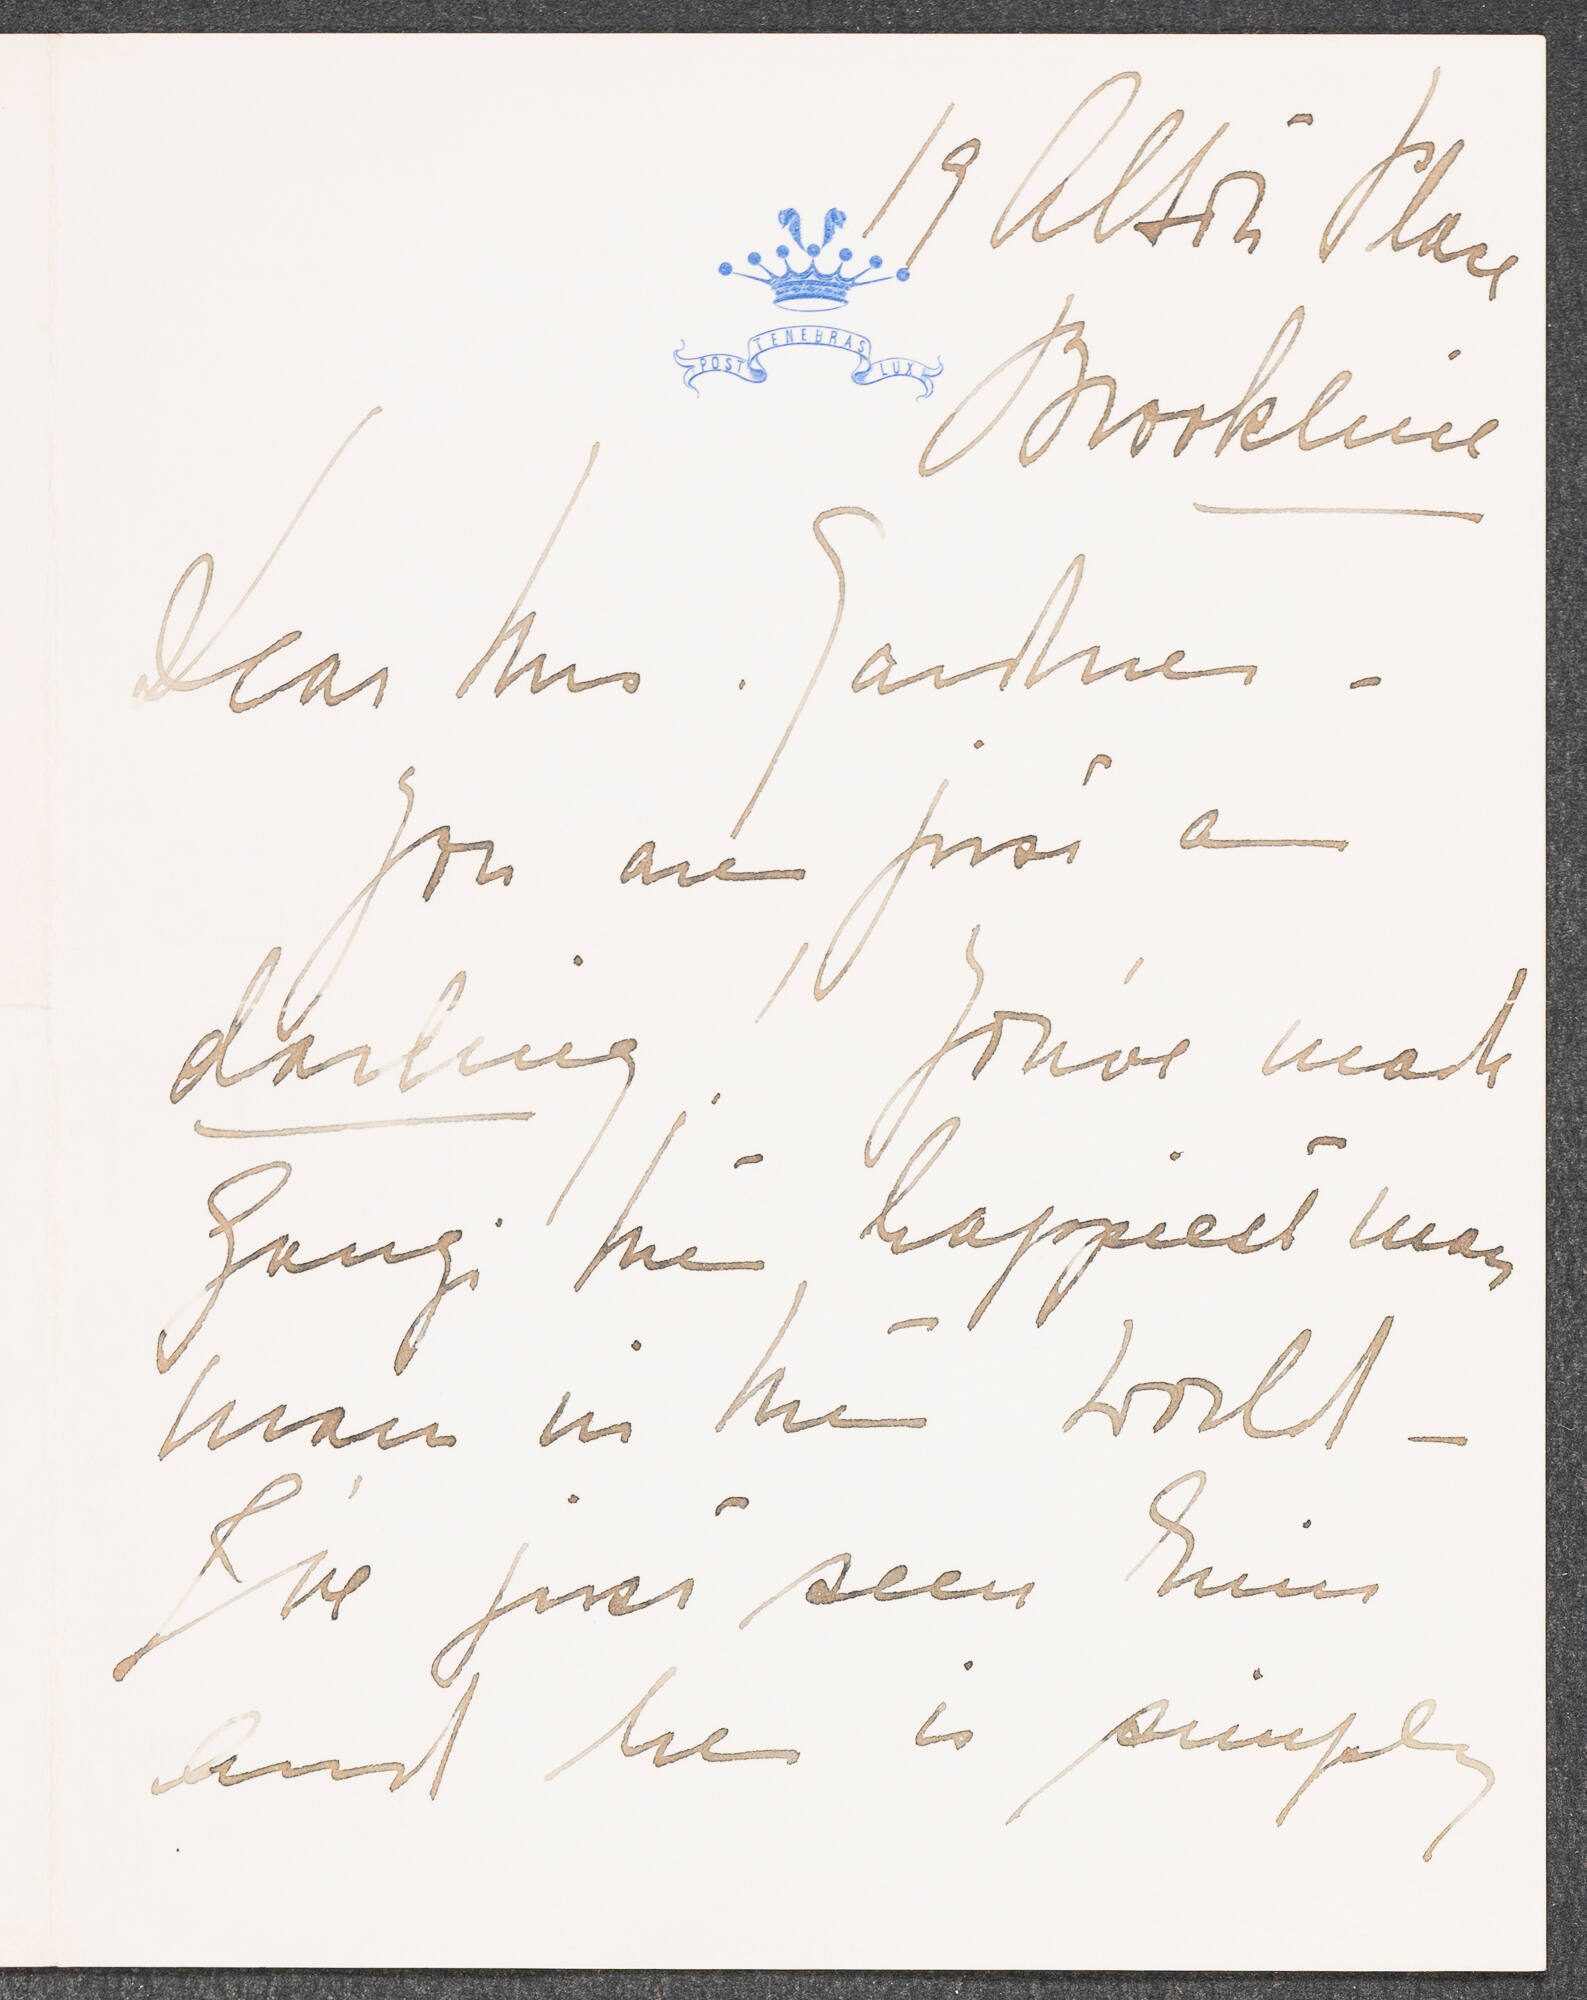 19 Alton Place
POST TENEBRAS LUX
Brookline
Dear Mrs. Gardner -
you are just a
darling! You've made
Gangi the happiest man
man in the world -
I've just seen him
and he is simply